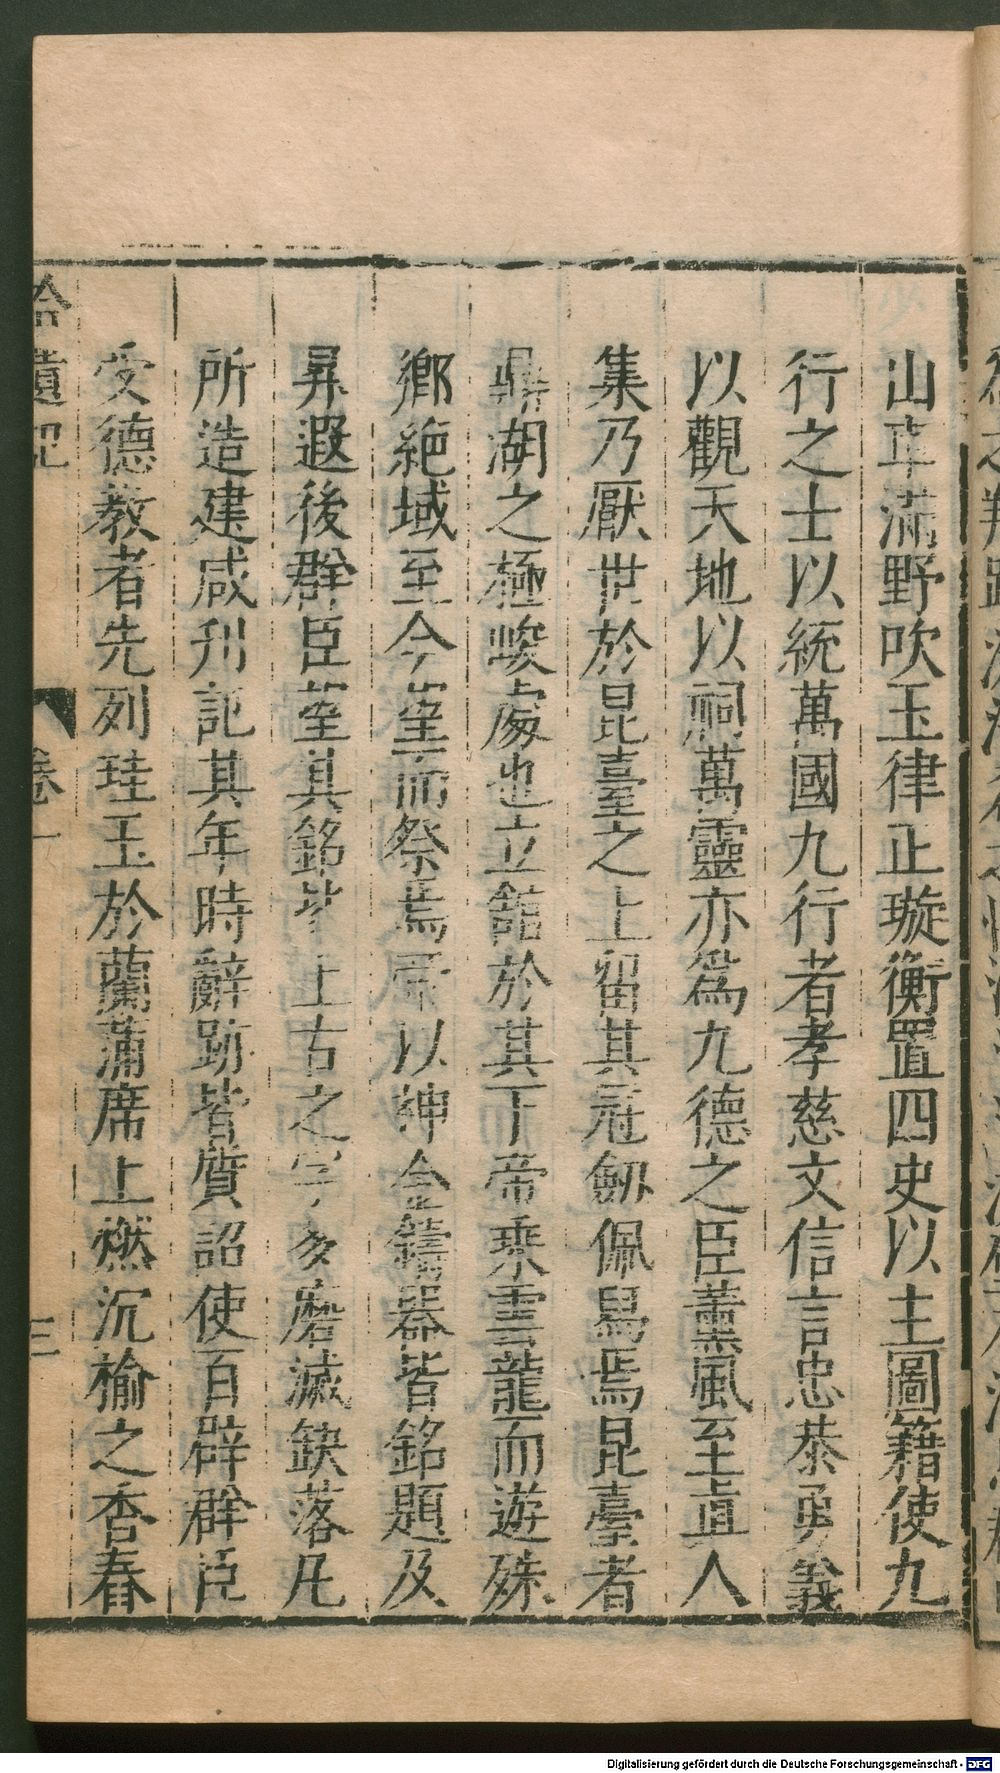 山車滿野吹玉律正璇衡置四史以主圖籍使九
行之士以統萬國九行者孝慈文信言忠恭勇義
以觀天地以祠萬靈亦爲九德之臣薰風至眞人
集乃厭世於昆臺之上留其冠劒佩舄焉昆臺者
鼎湖之極峻處也立館於其下帝乘雲龍而遊殊
鄉絶域至今望而祭焉帝以神金鑄器皆銘題及
昇遐後群臣望其銘皆上古之字多磨滅缺落凡
所造建咸刋記其年時辭跡皆質詔使百辟群臣
受德教者先列珪玉於蘭蒲席上燃沉榆之香舂
拾遺記
卷一
三
Digitalisierung gefördert durch die Deutsche Forschungsgemeinschaft - DFG